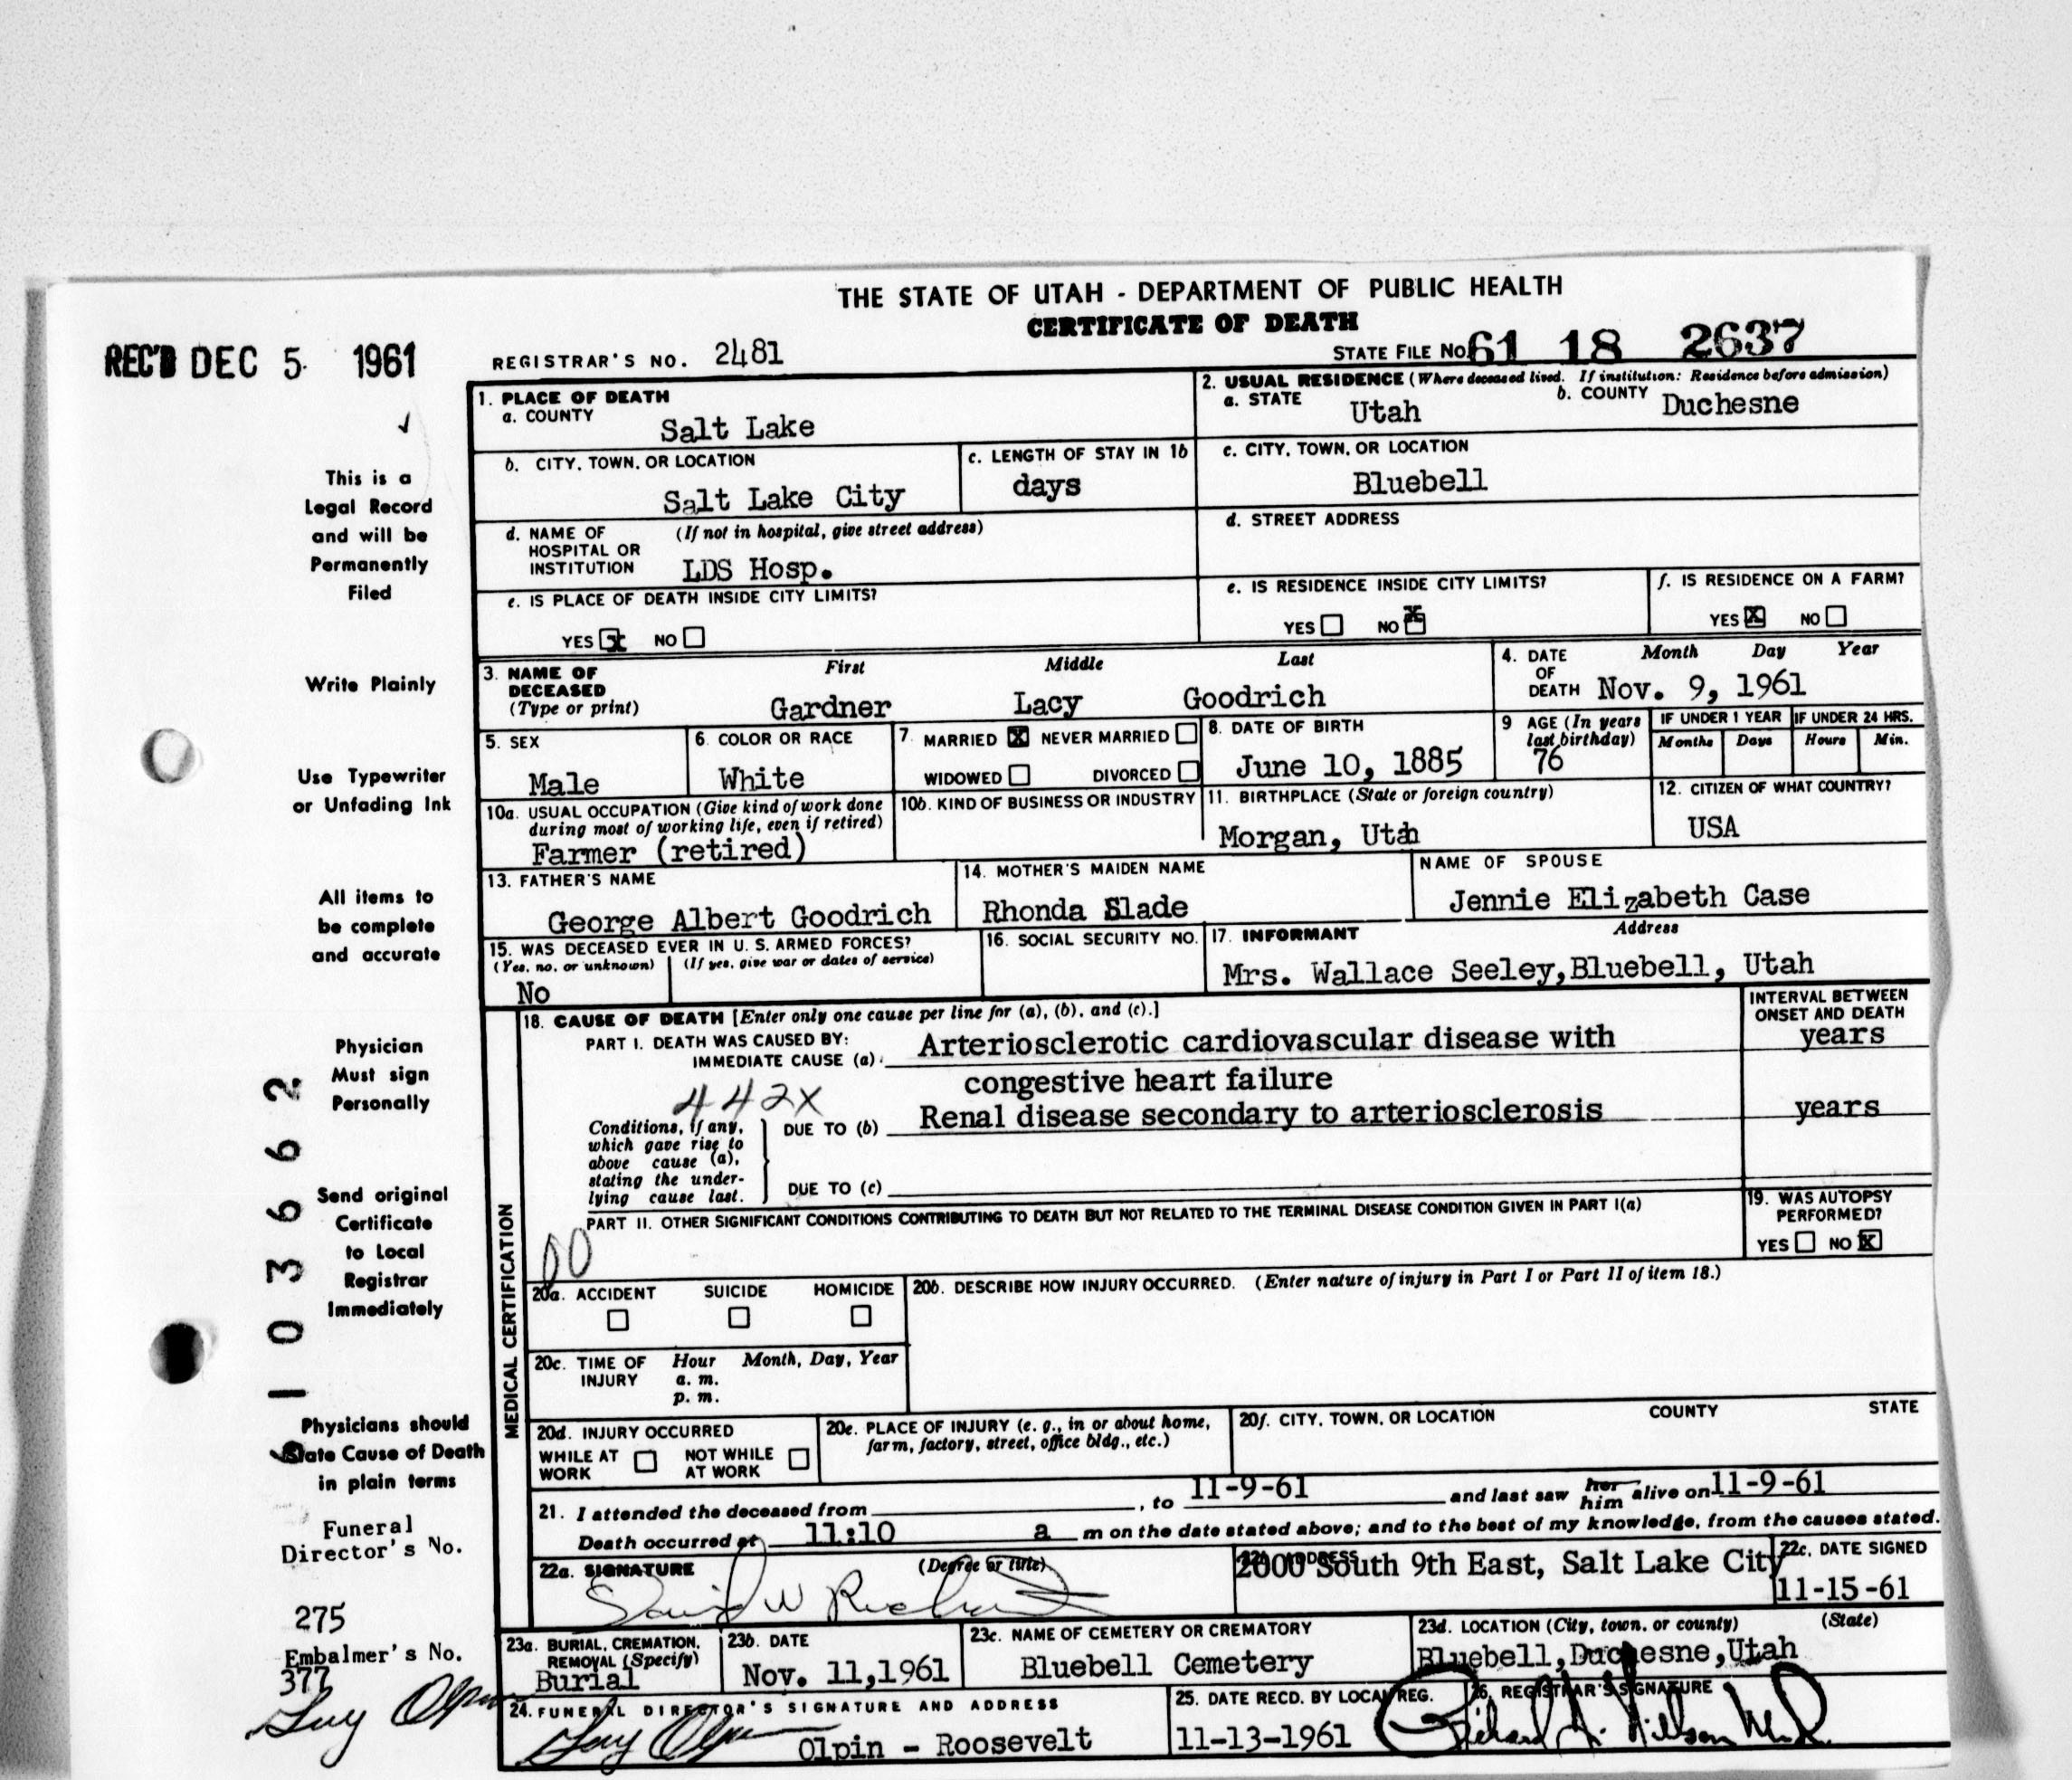 THE STATE OF UTAH - DEPARTMENT OF PUBLIC HEALTH
CERTIFICATE OF DEATH
REC'D DEC 5 1961
REGISTRAR'S NO. 2481
STATE FILE NO. 61 18 2637
1. PLACE OF DEATH
a. COUNTY
Salt Lake
2. USUAL RESIDENCE (Where deceased lived. If institution: Residence before admission)
a. STATE Utah b. COUNTY Duchesne
b. CITY, TOWN, OR LOCATION
Salt Lake City
c. LENGTH OF STAY IN 1b
days
c. CITY, TOWN, OR LOCATION
Bluebell
d. NAME OF HOSPITAL OR INSTITUTION (If not in hospital, give street address)
LDS Hosp.
d. STREET ADDRESS
e. IS PLACE OF DEATH INSIDE CITY LIMITS?
YES x NO
e. IS RESIDENCE INSIDE CITY LIMITS?
YES NO x
f. IS RESIDENCE ON A FARM?
YES X NO
3. NAME OF DECEASED (Type or print)
First Middle Last
Gardner Lacy Goodrich
4. DATE OF DEATH Month Day Year
Nov. 9, 1961
5. SEX
Male
6. COLOR OR RACE
White
7. MARRIED X NEVER MARRIED
WIDOWED DIVORCED
8. DATE OF BIRTH
June 10, 1885
9 AGE (In years last birthday)
76
IF UNDER 1 YEAR IF UNDER 24 HRS.
Months Days Hours Min.
10a. USUAL OCCUPATION (Give kind of work done during most of working life, even if retired)
Farmer (retired)
10b. KIND OF BUSINESS OR INDUSTRY
11. BIRTHPLACE (State or foreign country)
Morgan, Utah
12. CITIZEN OF WHAT COUNTRY?
USA
13. FATHER'S NAME
George Albert Goodrich
14. MOTHER'S MAIDEN NAME
Rhonda Slade
NAME OF SPOUSE
Jennie Elizabeth Case
15. WAS DECEASED EVER IN U. S. ARMED FORCES?
(Yes, no, or unknown) (If yes, give war or dates of service)
No
16. SOCIAL SECURITY NO.
17. INFORMANT Address
Mrs. Wallace Seeley, Bluebell, Utah
MEDICAL CERTIFICATION
18. CAUSE OF DEATH [Enter only one cause per line for (a), (b), and (c).]
INTERVAL BETWEEN ONSET AND DEATH
PART I. DEATH WAS CAUSED BY:
IMMEDIATE CAUSE (a) Arteriosclerotic cardiovascular disease with years
congestive heart failure
442X
Conditions, if any, which gave rise to above cause (a), stating the underlying cause last.
DUE TO (b) Renal disease secondary to arteriosclerosis years
DUE TO (c)
PART II. OTHER SIGNIFICANT CONDITIONS CONTRIBUTING TO DEATH BUT NOT RELATED TO THE TERMINAL DISEASE CONDITION GIVEN IN PART I(a)
00
19. WAS AUTOPSY PERFORMED?
YES NO X
20a. ACCIDENT SUICIDE HOMICIDE
20b. DESCRIBE HOW INJURY OCCURRED. (Enter nature of injury in Part I or Part II of item 18.)
20c. TIME OF INJURY Hour Month, Day, Year
a. m.
p. m.
20d. INJURY OCCURRED
WHILE AT WORK NOT WHILE AT WORK
20e. PLACE OF INJURY (e. g., in or about home, farm, factory, street, office bldg., etc.)
20f. CITY, TOWN, OR LOCATION COUNTY STATE
21. I attended the deceased from , to 11-9-61 and last saw her him alive on 11-9-61
Death occurred at 11:10 a m on the date stated above; and to the best of my knowledge, from the causes stated.
22a. SIGNATURE (Degree or title)
David W
22b. ADDRESS
2000 South 9th East, Salt Lake City
22c. DATE SIGNED
11-15-61
23a. BURIAL, CREMATION, REMOVAL (Specify)
Burial
23b. DATE
Nov. 11,1961
23c. NAME OF CEMETERY OR CREMATORY
Bluebell Cemetery
23d. LOCATION (City, town, or county) (State)
Bluebell, Duchesne, Utah
24. FUNERAL DIRECTOR'S SIGNATURE AND ADDRESS
Guy Olpin
Olpin - Roosevelt
25. DATE RECD. BY LOCAL REG.
11-13-1961
26. REGISTRAR'S SIGNATURE
This is a
Legal Record
and will be
Permanently
Filed
Write Plainly
Use Typewriter
or Unfading Ink
All items to
be complete
and accurate
Physician
Must sign
Personally
Send original
Certificate
to Local
Registrar
Immediately
Physicians should
State Cause of Death
in plain terms
Funeral
Director's No.
275
Embalmer's No.
377
Guy Olpin
103662